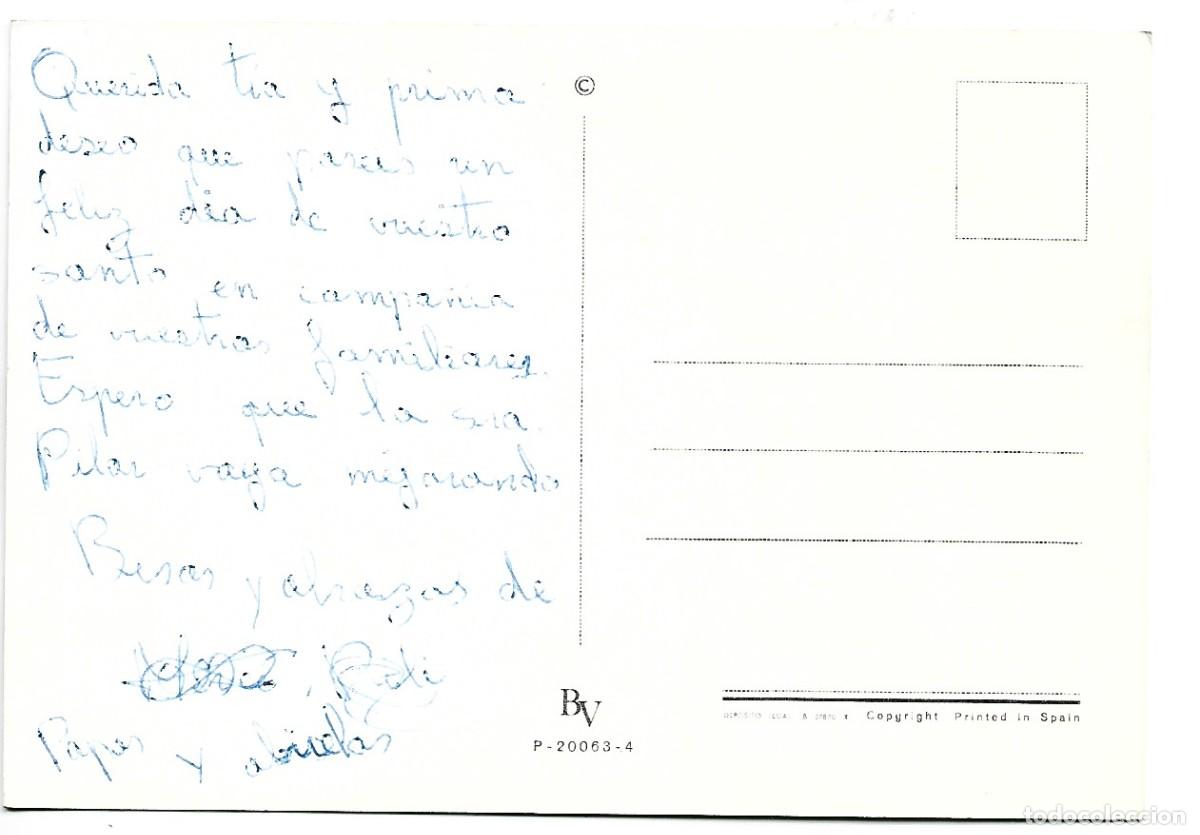 Querida tía y prima
deseo que paseis un
feliz día de vuestro
santo en compania
de vuestros familiares.
Espero que la sra.
Pilar vaya mejorando
Besos y abrazos de
Papas y abuelas
©
BV
P-20063-4
DEPOSITO LEGAL B.
Copyright Printed in Spain
todocoleccion